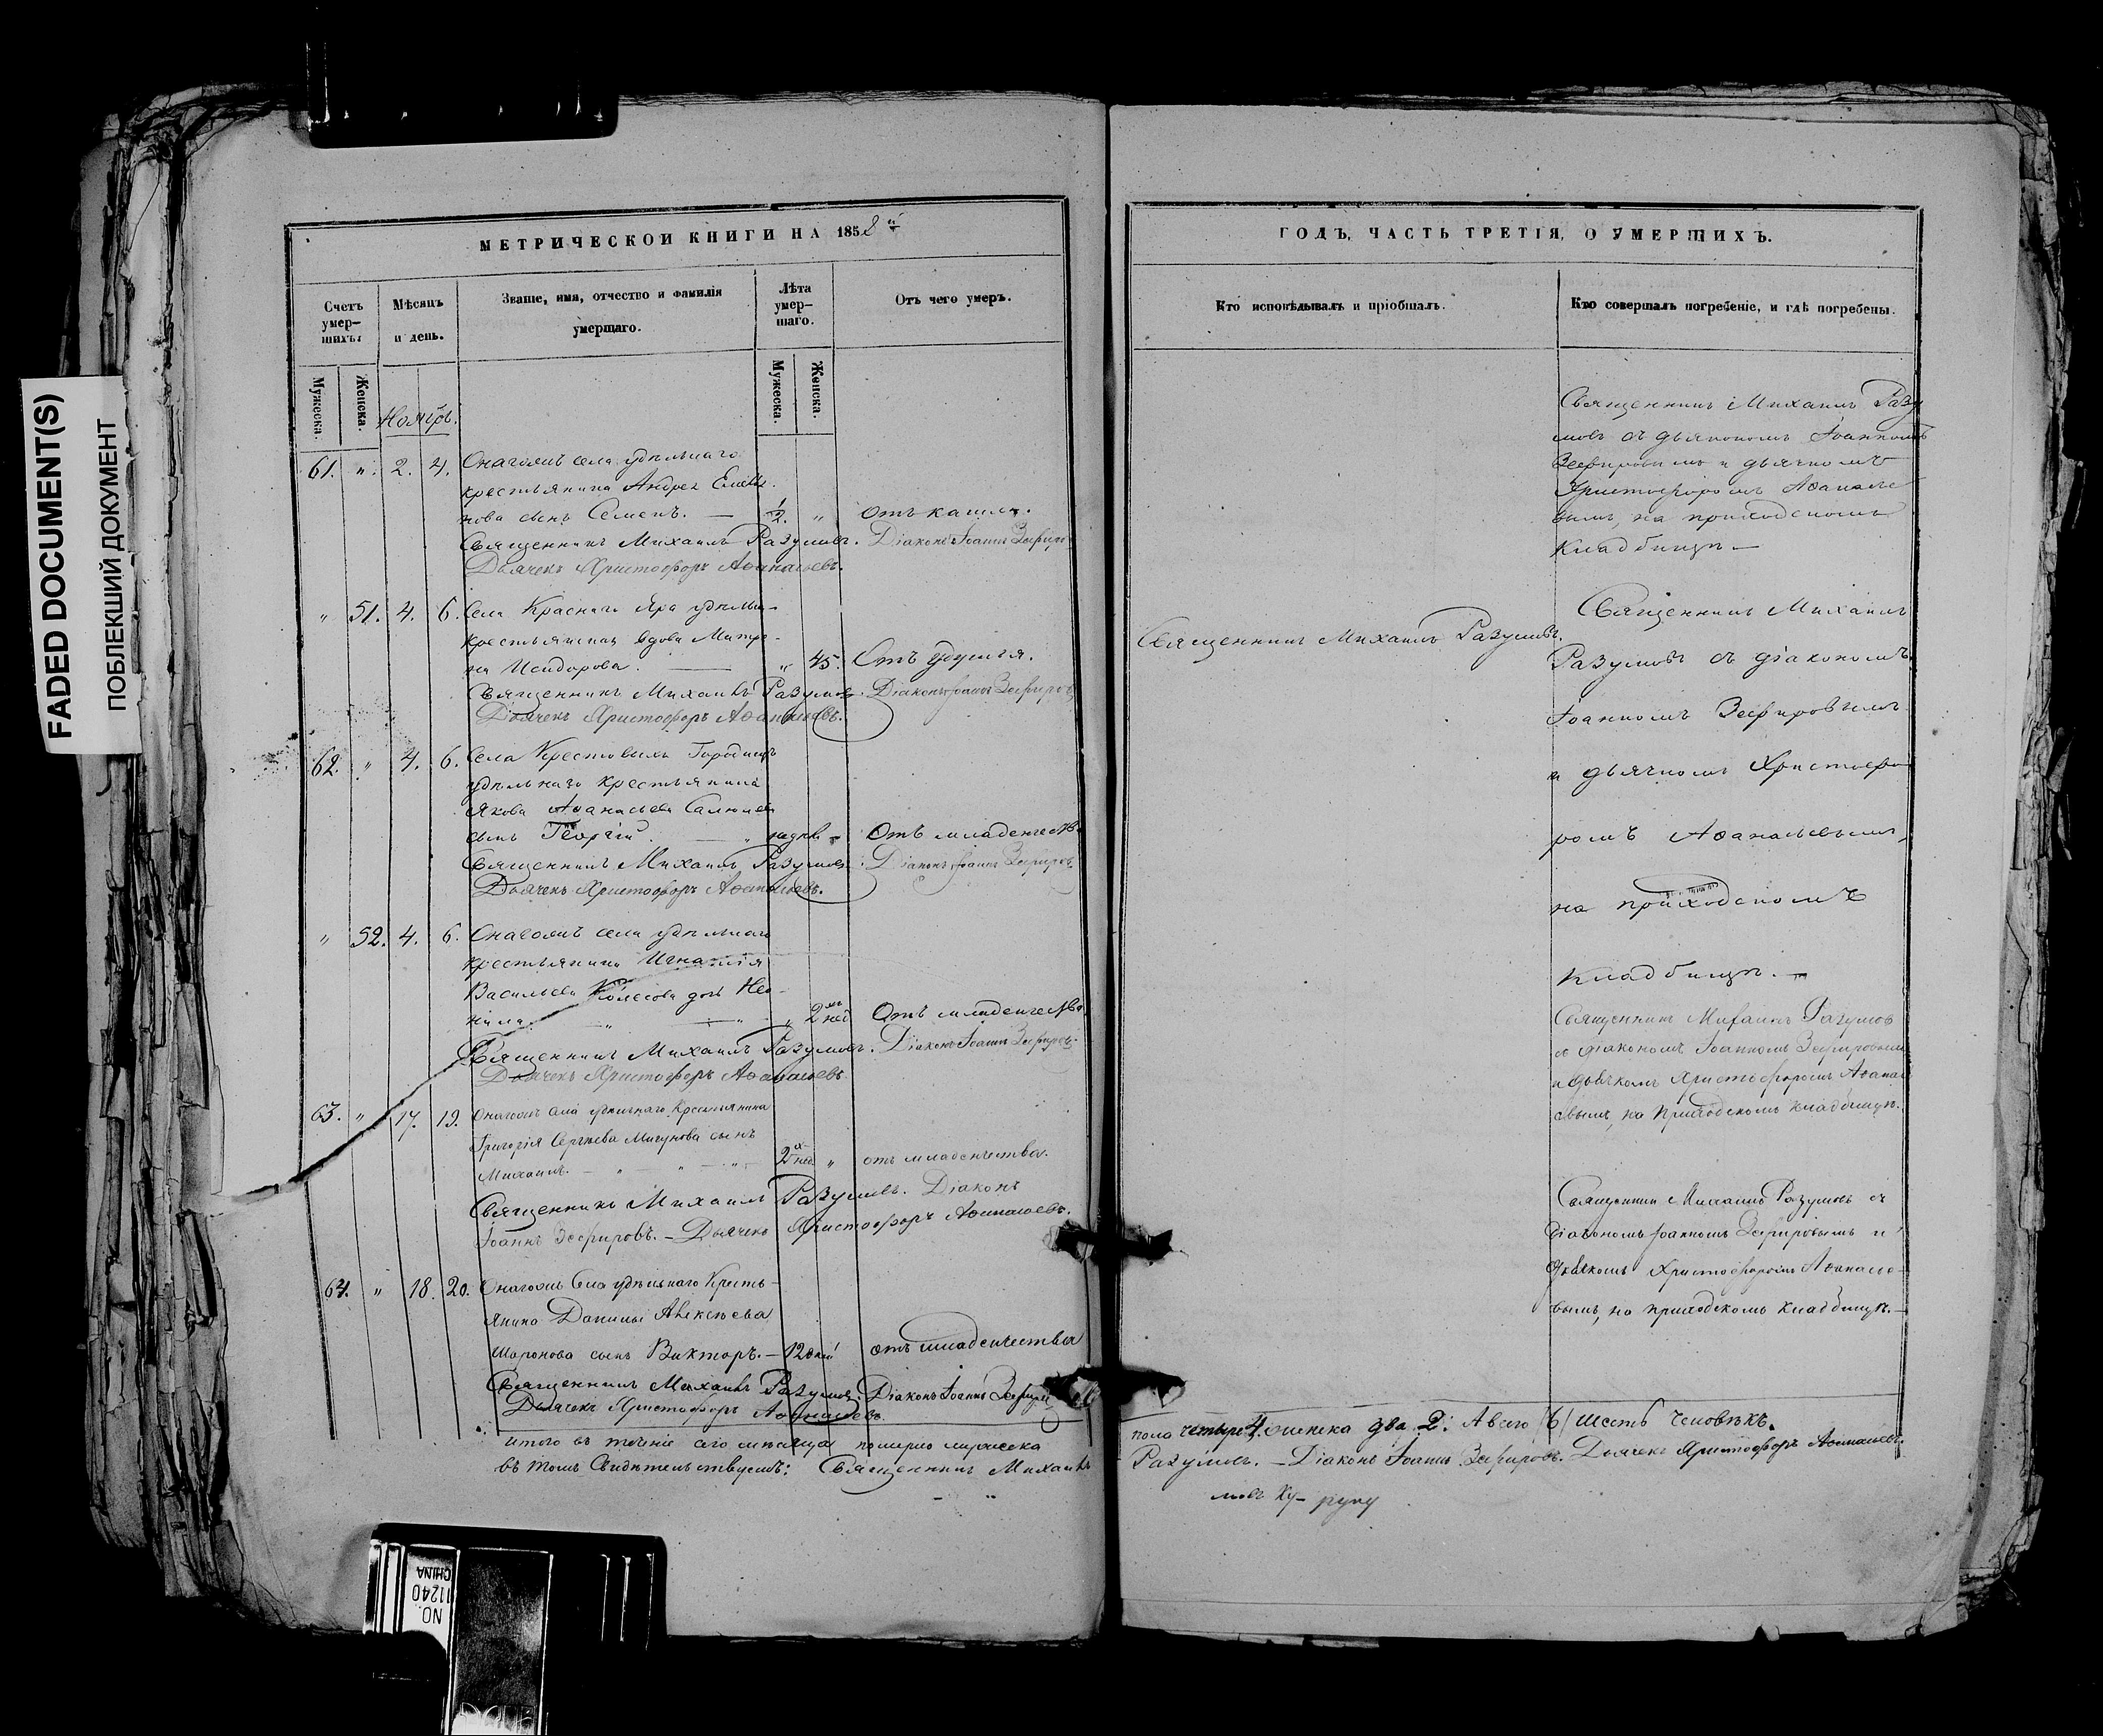 FADED DOCUMENT(S)
ПОБЛЕКШИЙ ДОКУМЕНТ
МЕТРИЧЕСКОЙ КНИГИ НА 1858й
Счетъ умер-шихъ:
Мужеска.
Женска.
Мѣсяцъ и день.
Званіе, имя, отчество и фамилія умершаго.
Лѣта умер-шаго.
Мужеска.
Женска.
Отъ чего умеръ.
Ноябрь.
61. „ 2. 4. Онагожъ села удѣльнаго
крестьянина Андрея
нова сынъ Семенъ. — 1/2. „ Отъ кашля.
Священникъ Михаилъ Разумовъ. Діаконъ Іоаннъ Зефиров
Дьячекъ Христофоръ Аѳанасьевъ.
„ 51. 4. 6. Села Краснаго Яра удѣльн-
крестьянская вдова Матре-
на Исидорова. — „ 45. Отъ удушья.
Священникъ Михаилъ Разумов. Діаконъ Іоаннъ Зефиров
Дьячекъ Христофоръ Аѳанасьевъ.
62. „ 4. 6. Села Крестовыхъ Городищъ
удѣльнаго крестьянина
Якова Аѳанасьева
сынъ Георгій. — „ Отъ младенчества
Священникъ Михаилъ Разумовъ. Діаконъ Іоаннъ Зефиров.
Дьячекъ Христофоръ Аѳанасьевъ.
„ 52. 4. 6. Онагожъ села удѣльнаго
крестьянина Игнатія
Васильева Колесова дочь Нео-
нила. „ — „ „ 2 нед Отъ младенчества
Священникъ Михаилъ Разумовъ. Діаконъ Іоаннъ Зефиров.
Дьячекъ Христофоръ Аѳанасьевъ
63. „ 17. 19. Онагожъ села удѣльнаго Крестьянина
Григорія Сергѣева Мигунова сынъ
Михаилъ. — „ — „ — „ 2х нед. „ отъ младенчества.
Священникъ Михаилъ Разумовъ. Діаконъ
Іоаннъ Зефировъ. — Дьячекъ Христофоръ Аѳанасьевъ.
64. „ 18. 20. Онагожъ Села удѣльнаго Кресть-
янина Данилы Алексѣева
Шаронова сынъ Викторъ. — 12 дней отъ младенчества
Священникъ Михаилъ Разумов. Діаконъ Іоаннъ Зефиров
Дьячекъ Христофоръ Аѳанасьевъ.
Итого въ теченіе сего мѣсяца померло мужеска
въ томъ Свидѣтельствуемъ: Священникъ Михаилъ
ГОДЪ, ЧАСТЬ ТРЕТІЯ, О УМЕРШИХЪ.
Кто исповѣдывалъ и пріобщалъ.
Кто совершалъ погребеніе, и гдѣ погребены.
Священникъ Михаилъ Разу
мовъ съ дьякономъ Іоанномъ
Зефировымъ и дьячкомъ
Христофоромъ Аѳанасье
вымъ, на приходскомъ
Кладбищѣ —
Священникъ Михаилъ Разумовъ.
Священникъ Михаилъ
Разумовъ съ діакономъ
Іоанномъ Зефировымъ
и дьячкомъ Христофо
ромъ Аѳанасьевымъ,
на приходскомъ
Кладбищѣ. —
Священникъ Михаилъ Разумов
съ діакономъ Іоанномъ Зефировым
и дьячкомъ Христофоромъ Аѳанас
евымъ, на Приходскомъ кладбищѣ.
Священникъ Михаилъ Разумовъ съ
діакономъ Іоанномъ Зефировымъ и
дьячкомъ Христофоромъ Аѳанасье-
вымъ, на приходскомъ кладбищѣ. —
пола четыре 4, женска два 2: А всего /6/ шесть человѣкъ.
Разумов. — Діаконъ Іоаннъ Зефировъ. Дьячекъ Христофоръ Аѳанасьевъ.
руку
NO.
11240
CHINA